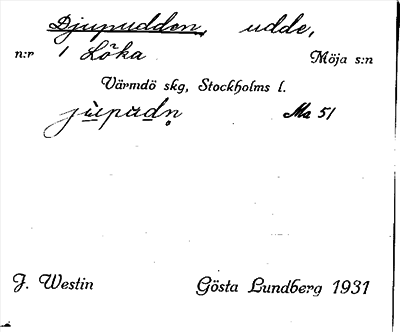 Djupudden, udde,
n:r 1 Löka Möja s:n
Värmdö skg, Stockholms l.
jùpùdṇ Ma 51
J. Westin Gösta Lundberg 1931